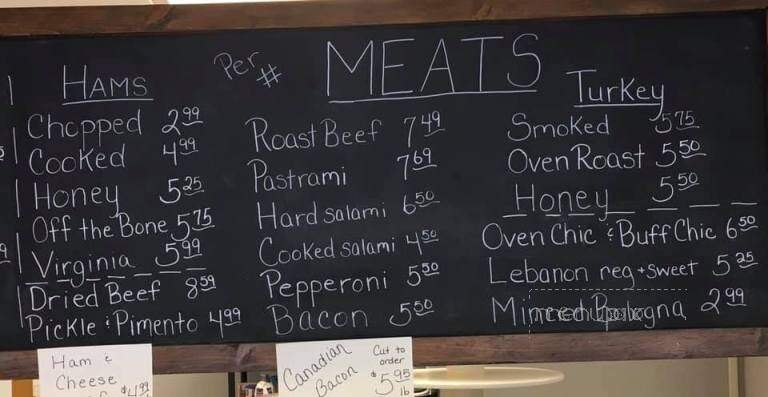 Per #
MEATS
HAMS
Chopped 2.99
Cooked 4.99
Honey 5.25
Off the Bone 5.75
Virginia 5.99
Dried Beef 8.59
Pickle & Pimento 4.99
Roast Beef 7.49
Pastrami 7.69
Hard salami 6.50
Cooked salami 4.50
Pepperoni 5.50
Bacon 5.50
Turkey
Smoked 5.75
Oven Roast 5.50
Honey 5.50
Oven Chic & Buff Chic 6.50
Lebanon reg + sweet 5.25
Minced Bologna 2.99
Ham &
Cheese
$4.99
Canadian
Bacon
Cut to
order
$5.95
lb